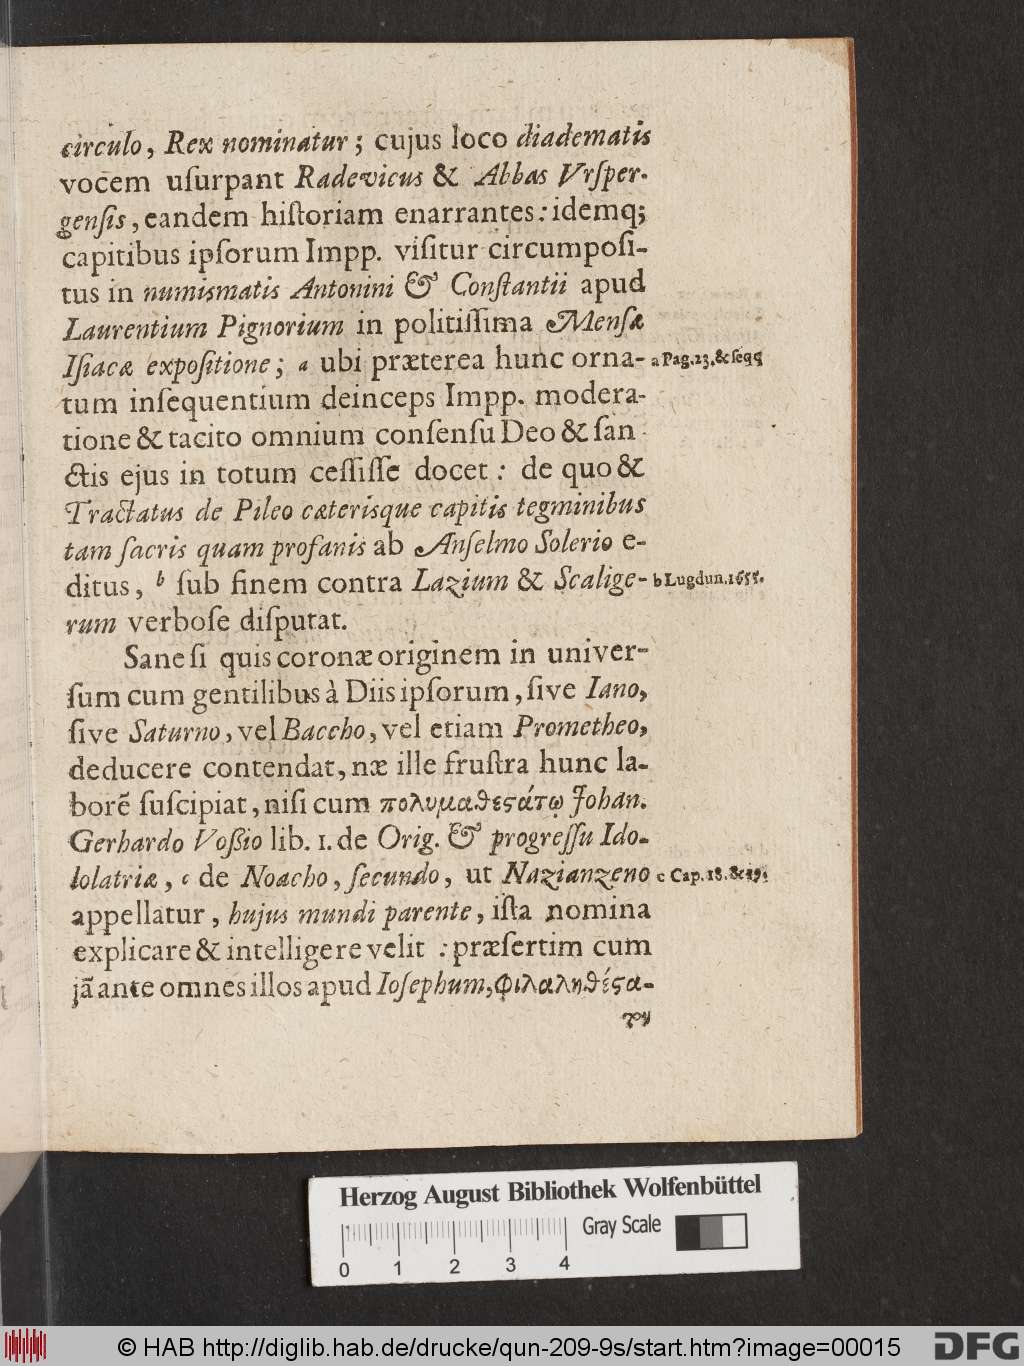 circulo, Rex nominatur; cujus loco diadematis
vocem uſurpant Radevicus & Abbas Vrſper-
genſis, eandem hiſtoriam enarrantes: idemq;
capitibus ipſorum Impp. viſitur circumpoſi-
tus in numismatis Antonini & Conſtantii apud
Laurentium Pignorium in politiſſima Menſæ
Iſiacæ expoſitione; a ubi præterea hunc orna- a Pag. 23. & ſeqq
tum inſequentium deinceps Impp. modera-
tione & tacito omnium conſenſu Deo & ſan
ctis ejus in totum ceſſiſſe docet: de quo &
Tractatus de Pileo cæterisque capitis tegminibus
tam ſacris quam profanis ab Anſelmo Solerio e-
ditus, b ſub finem contra Lazium & Scalige- b Lugdun. 1655.
rum verboſe diſputat.
Sane ſi quis coronæ originem in univer-
ſum cum gentilibus à Diis ipſorum, ſive Iano,
ſive Saturno, vel Baccho, vel etiam Prometheo,
deducere contendat, næ ille fruſtra hunc la-
borē ſuſcipiat, niſi cum πολυμαθεϛάτῳ Johan.
Gerhardo Voßio lib. 1. de Orig. & progreſſu Ido-
lolatriæ, c de Noacho, ſecundo, ut Nazianzeno c Cap. 18. & 19.
appellatur, hujus mundi parente, iſta nomina
explicare & intelligere velit: præſertim cum
jā ante omnes illos apud Ioſephum, φιλαληθέϛα-
τον
Herzog August Bibliothek Wolfenbüttel
Gray Scale
0 1 2 3 4
© HAB http://diglib.hab.de/drucke/qun-209-9s/start.htm?image=00015
DFG